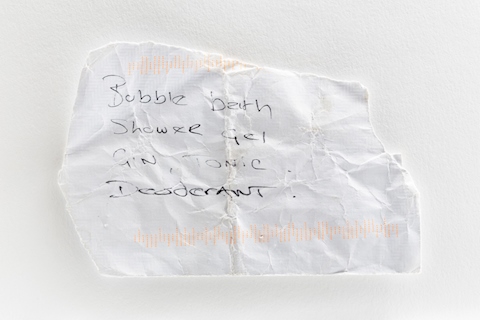 Bubble bath
Shower Gel
Gin, Tonic.
Deoderant.